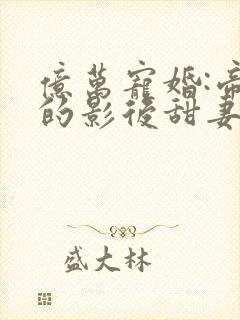 億萬寵婚:帝
的影後甜妻
盛大林